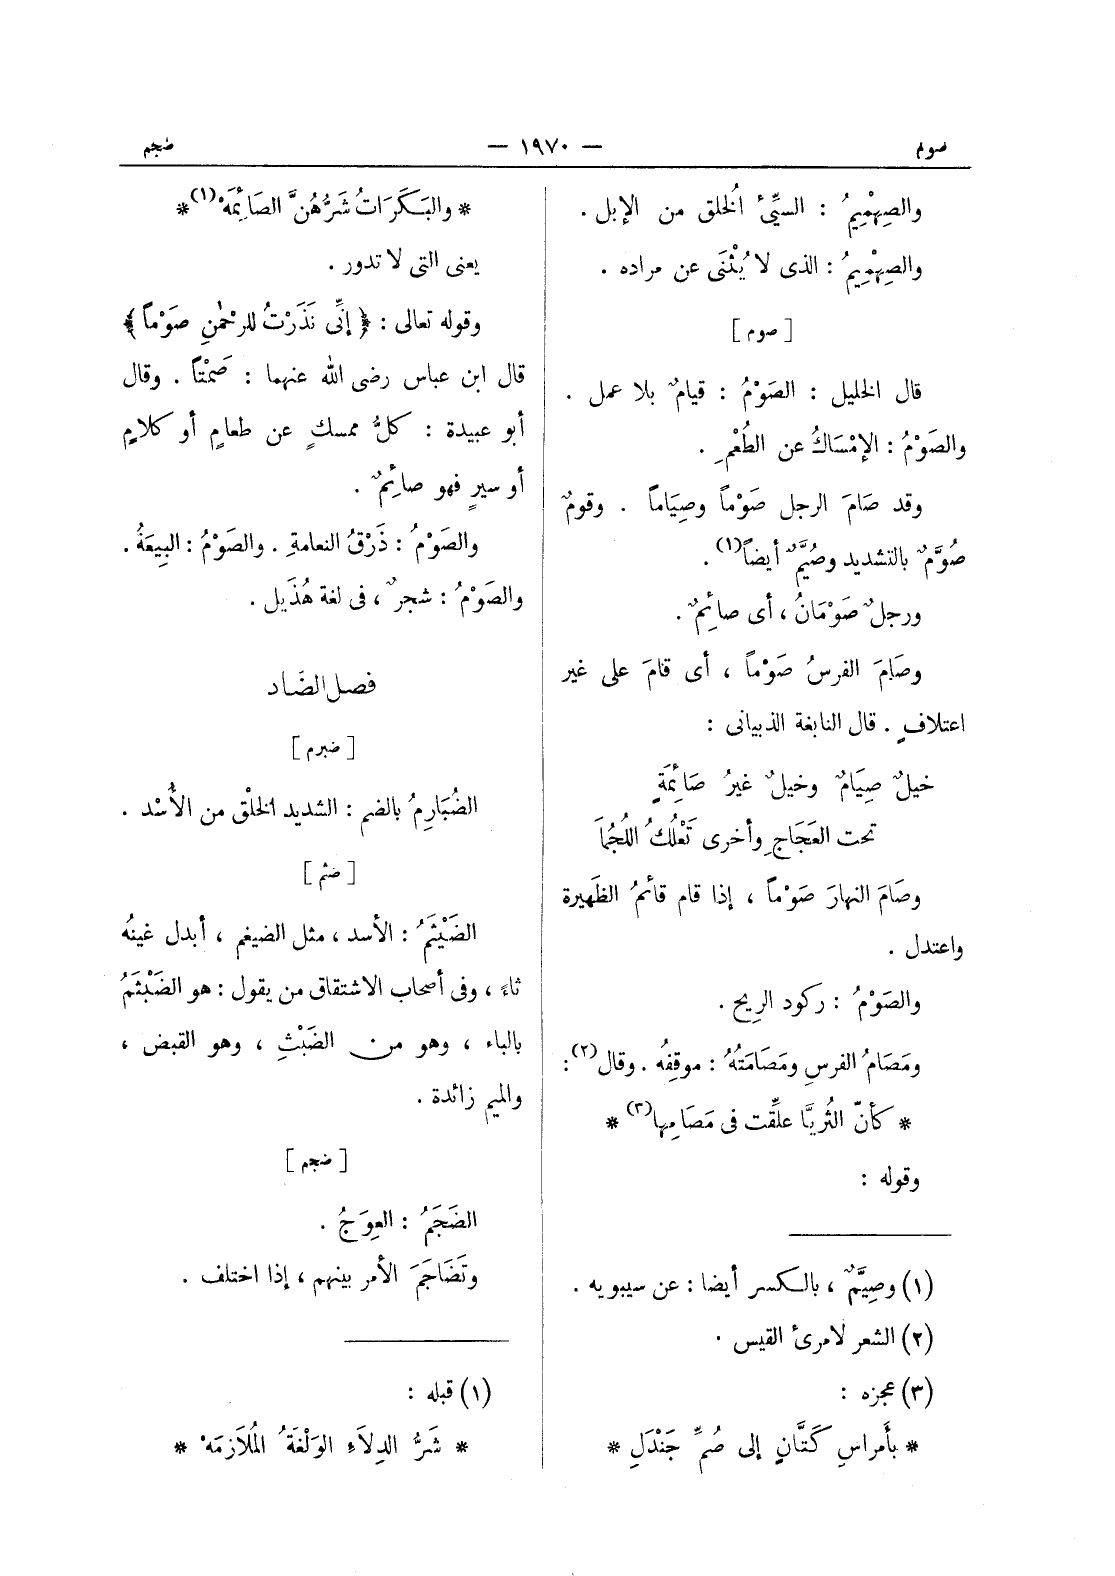 صوم — ١٩٧٠ — ضجم
والصِهْمِيمُ : السيِّئُ الُخلق من الإبل .
والصِهْمِيمُ : الذى لا يُثْنَى عن مراده .
[ صوم ]
قال الخليل : الصَوْمُ : قيامٌ بلا عمل .
والصَوْمُ : الإمْسَاكُ عن الطُعْمِ .
وقد صَامَ الرجل صَوْماً وصِيَاماً . وقومٌ
صُوَّمٌ بالتشديد وصُيَّمٌ أيضاً(١) .
ورجلٌ صَوْمَانُ ، أى صائِمٌ .
وصَامَ الفرسُ صَوْماً ، أى قامَ على غير
اعتلافٍ . قال النابغة الذبيانى :
خيلٌ صِيَامٌ وخيلٌ غيرُ صَائِمَةٍ
تحت العَجَاجِ وأخرى تَعْلُكُ اللُجُمَا
وصَامَ النهارَ صَوْماً ، إذا قام قائمُ الظَهيرة
واعتدل .
والصَوْمُ : ركود الرِيح .
ومَصَامُ الفرسِ ومَصَامَتُهُ : موقفُه . وقال(٢) :
* كأنّ الثُريَّا علِّقت فى مَصَامِها(٣) *
وقوله :
(١) وصِيَّمٌ ، بالكسر أيضا : عن سيبويه .
(٢) الشعر لامرئ القيس .
(٣) عجزه :
* بأَمراسِ كَتَّانٍ إلى صُمِّ جَنْدَلِ *
* والبَكَرَاتُ شَرُّهُنَّ الصَائِمَهْ(١) *
يعنى التى لا تدور .
وقوله تعالى : ﴿ إنِّى نَذَرْتُ للرحْمٰنِ صَوْماً ﴾
قال ابن عباس رضى الله عنهما : صَمْتاً . وقال
أبو عبيدة : كلُّ ممسكٍ عن طعامٍ أو كلامٍ
أو سيرٍ فهو صائِمٌ .
والصَوْمُ : ذَرْقُ النعامةِ . والصَوْمُ : البِيعَةُ .
والصَوْمُ : شجرٌ ، فى لغة هُذَيل .
فصل الضَاد
[ ضبرم ]
الضُبَارِمُ بالضم : الشديد الخلْق من الأُسْد .
[ ضثم ]
الضَيْثَمُ : الأسد ، مثل الضيغم ، أبدل غينُه
ثاءً ، وفى أصحاب الاشتقاق من يقول : هو الضَبْثَمُ
بالباء ، وهو من الضَبْثِ ، وهو القبض ،
والميم زائدة .
[ ضجم ]
الضَجَمُ : العِوَجُ .
وتَضَاجَمَ الأمر بينهم ، إذا اختلف .
(١) قبله :
* شَرُّ الدِلَاءِ الوَلْغَةُ المُلَازمَهْ *